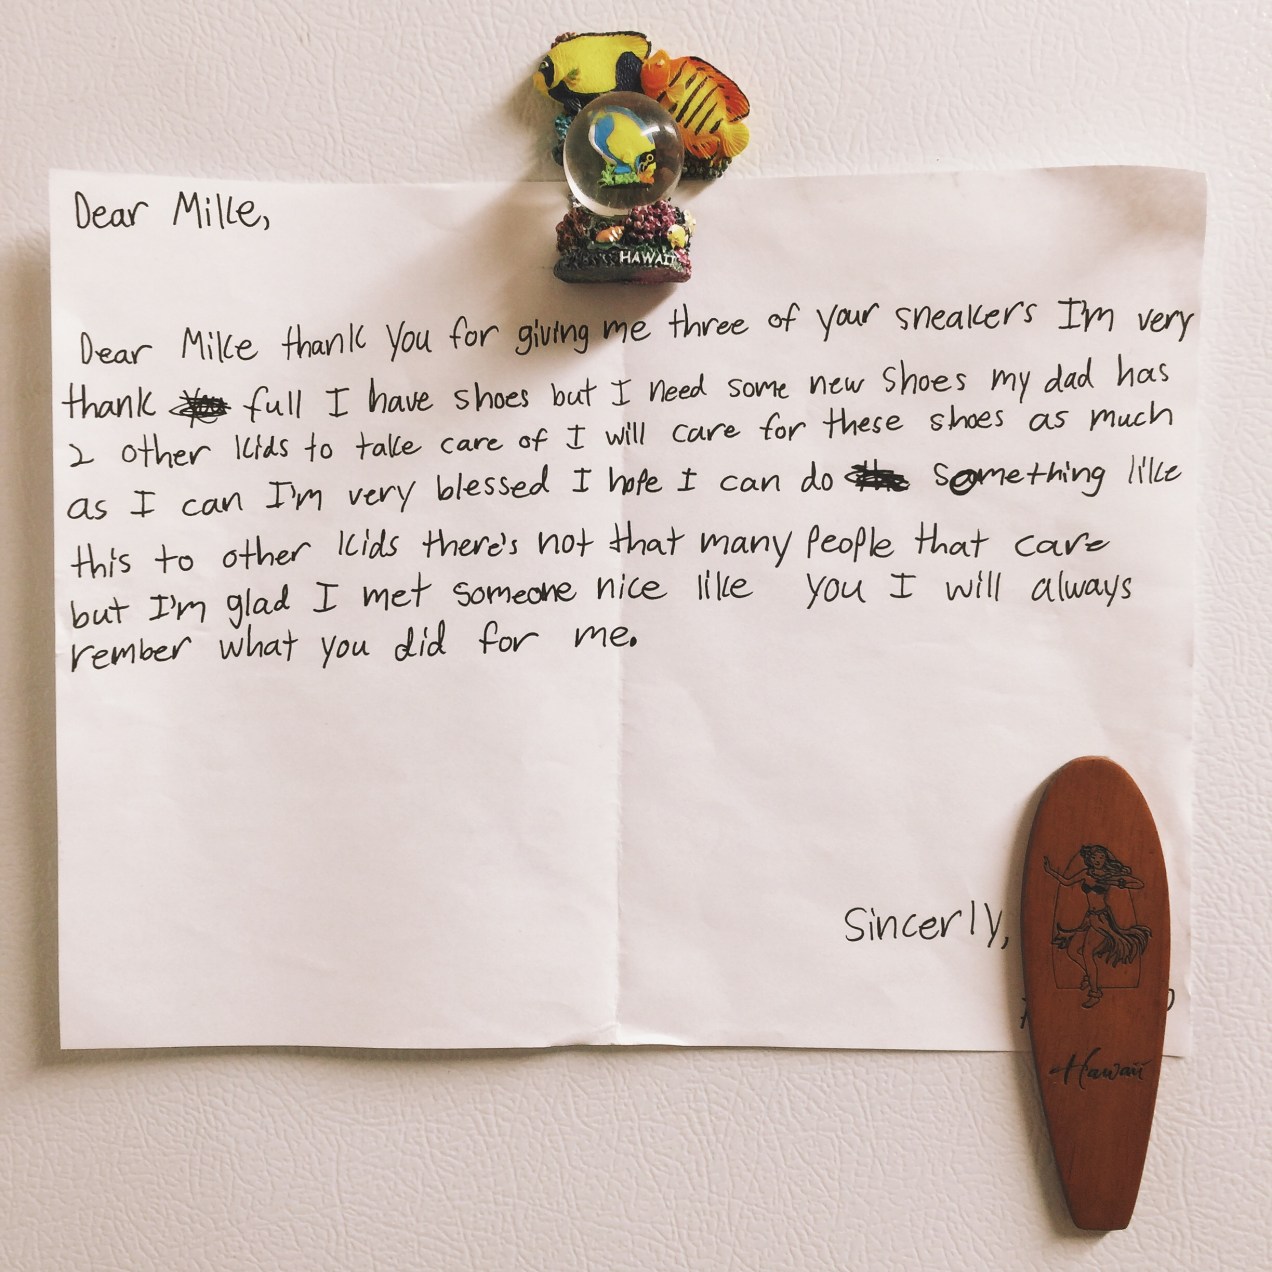 Dear Mike,
HAWAII
Dear Mike thank you for giving me three of your sneakers I'm very
thank full I have shoes but I need some new shoes my dad has
2 other kids to take care of I will care for these shoes as much
as I can I'm very blessed I hope I can do something like
this to other kids there's not that many people that care
but I'm glad I met someone nice like you I will always
rember what you did for me.
Sincerly,
Hawaii